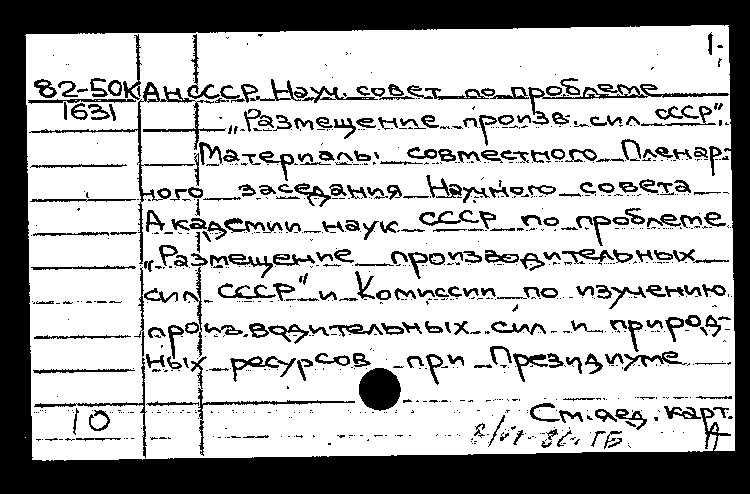 1.
82-50К АН СССР. Науч. совет по проблеме
1631 „Размещение произв. сил СССР".
Материалы совместного Пленар-
ного заседания Научного совета
Академии наук СССР по проблеме
„Размещение производительных
сил СССР" и Комиссии по изучению
производительных сил и природ-
ных ресурсов при Президиуме
10 См. след. карт.
ТБ. А